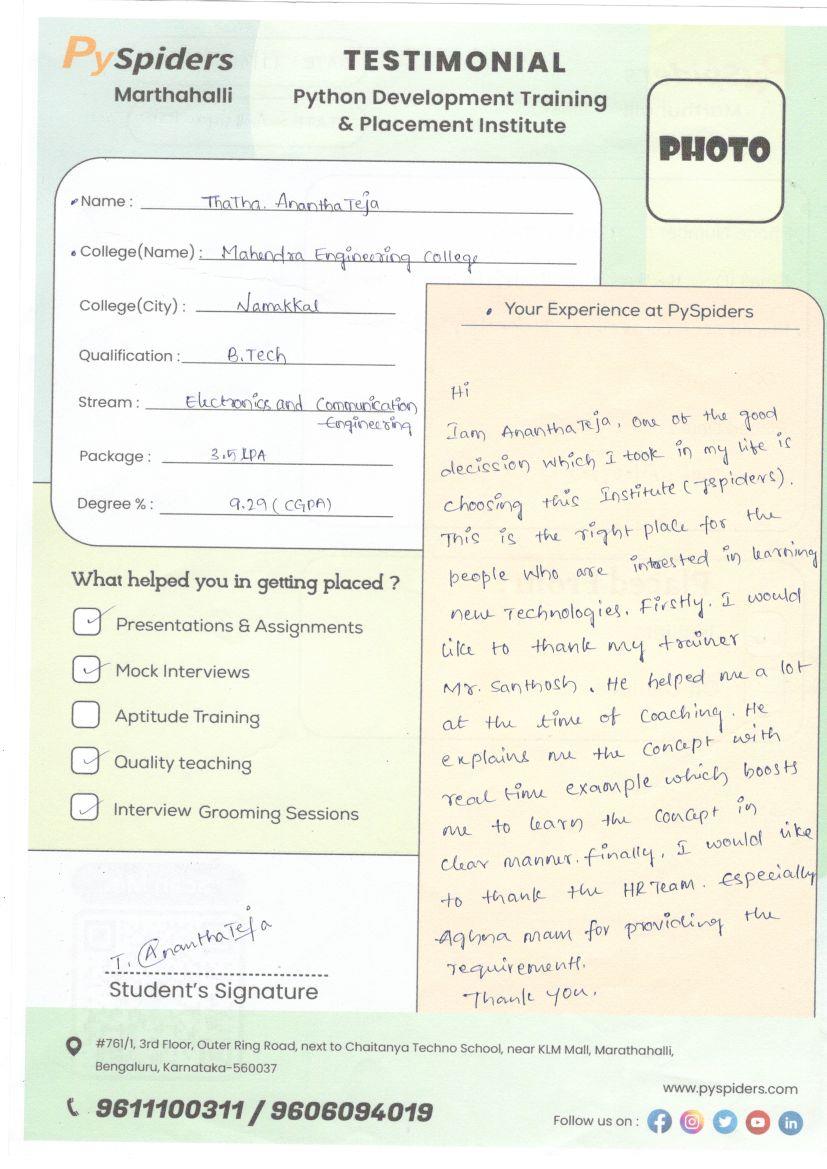 PySpiders
Marthahalli
TESTIMONIAL
Python Development Training
& Placement Institute
PHOTO
Name : ThaTha. AnanthaTeja
College(Name) : Mahendra Engineering College
College(City) : Namakkal
Qualification : B.Tech
Stream : Electronics and Communication
Engineering
Package : 3.5 LPA
Degree % : 9.29 (CGPA)
What helped you in getting placed ?
Presentations & Assignments
Mock Interviews
Aptitude Training
Quality teaching
Interview Grooming Sessions
Your Experience at PySpiders
Hi
Iam AnanthaTeja, one of the good
decission which I took in my life is
choosing this Institute (Jspiders).
This is the right place for the
people who are intrested in learning
new Technologies. Firstly, I would
like to thank my trainer
Mr. Santhosh. He helped me a lot
at the time of coaching. He
explains me the concept with
real time example which boosts
me to learn the concept in
clear manner. Finally, I would like
to thank the HR Team. Especially
mam for providing the
requirements.
Thank you.
T. AnanthaTeja
Student's Signature
#761/1, 3rd Floor, Outer Ring Road, next to Chaitanya Techno School, near KLM Mall, Marathahalli,
Bengaluru, Karnataka-560037
9611100311 / 9606094019
www.pyspiders.com
Follow us on :